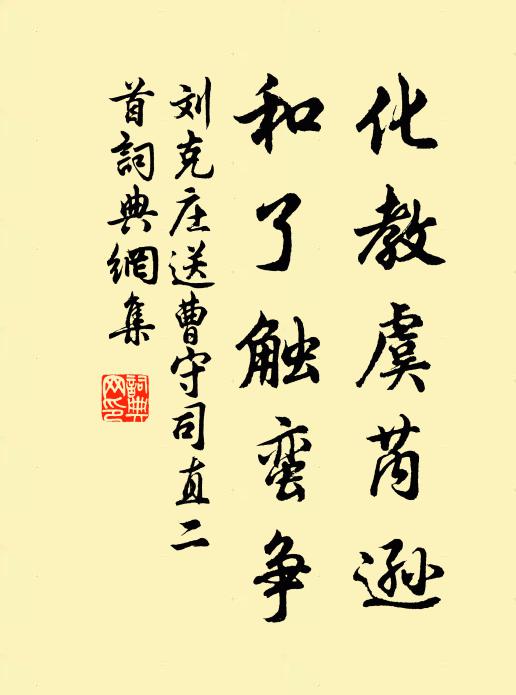 化教虞芮逊
和了触蛮争
刘克庄送曹守司直二
首詞典網集
詞典網印